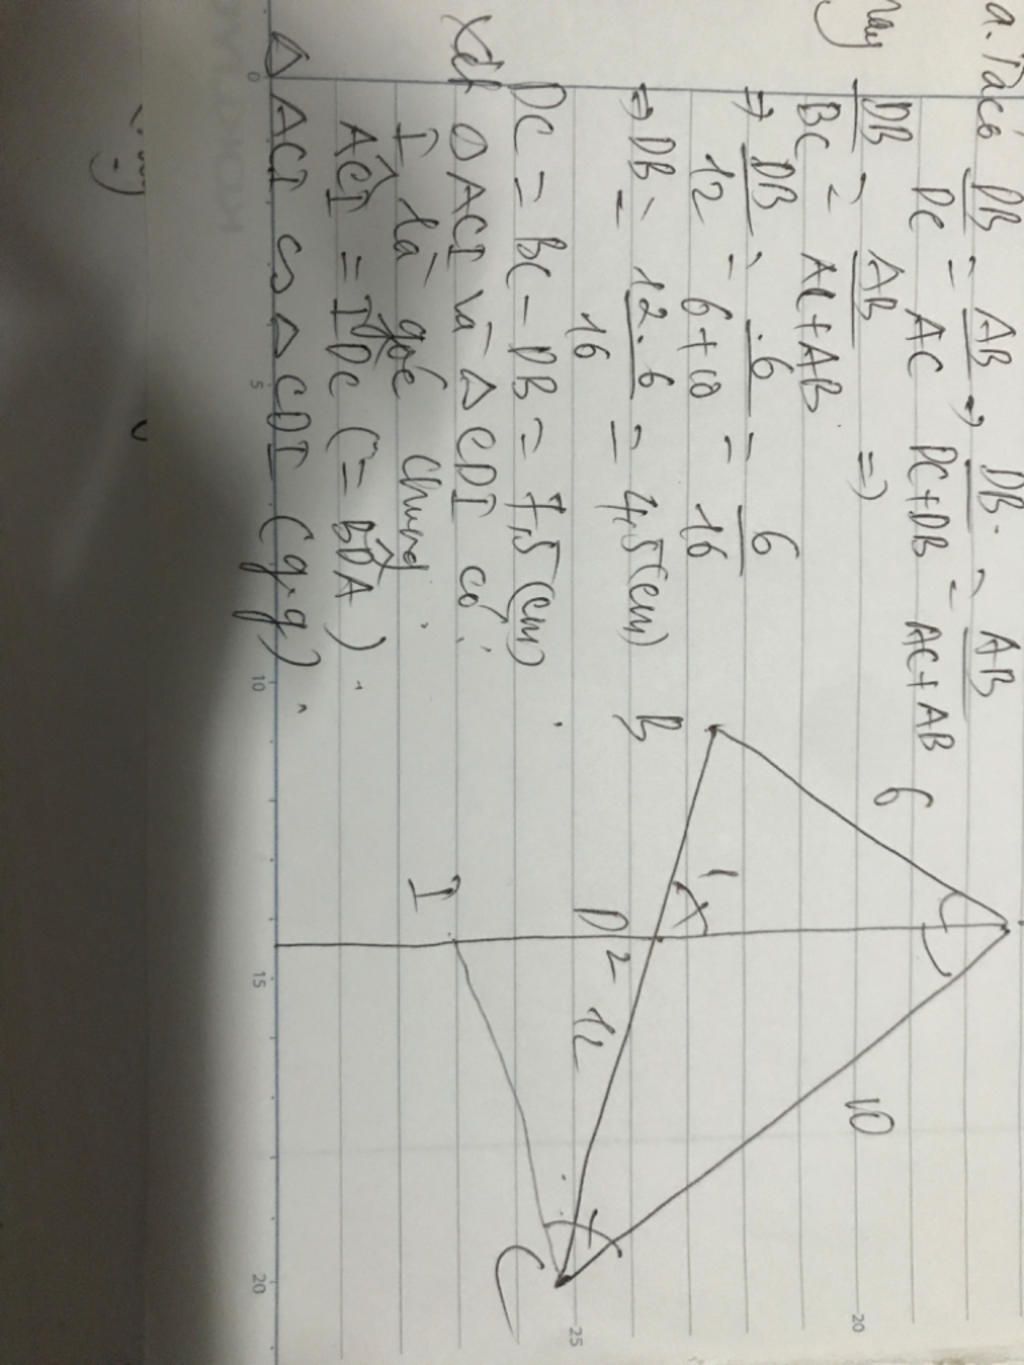 a. Ta có DB/DC = AB/AC => DB/DC+DB = AB/AC+AB
hay DB/BC = AB/AC+AB =>
=> DB/12 = 6/6+10 = 6/16
=> DB = 12.6/16 = 4,5 (cm)
DC = BC - DB = 7,5 (cm)
Xét Δ ACI và Δ CDI có:
I là góc chung
ACI = IDC (= BDA)
Δ ACI ∽ Δ CDI (g.g)
6
10
B
1
D
2
12
I
C
0
5
10
15
20
20
25